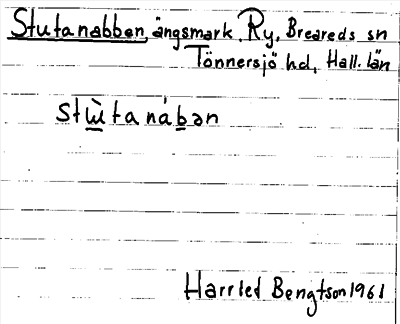 Stutanabben, ängsmark, Ry, Breareds sn
Tönnersjö hd, Hall. län
stɯ̀tanábən
Harriet Bengtson 1961